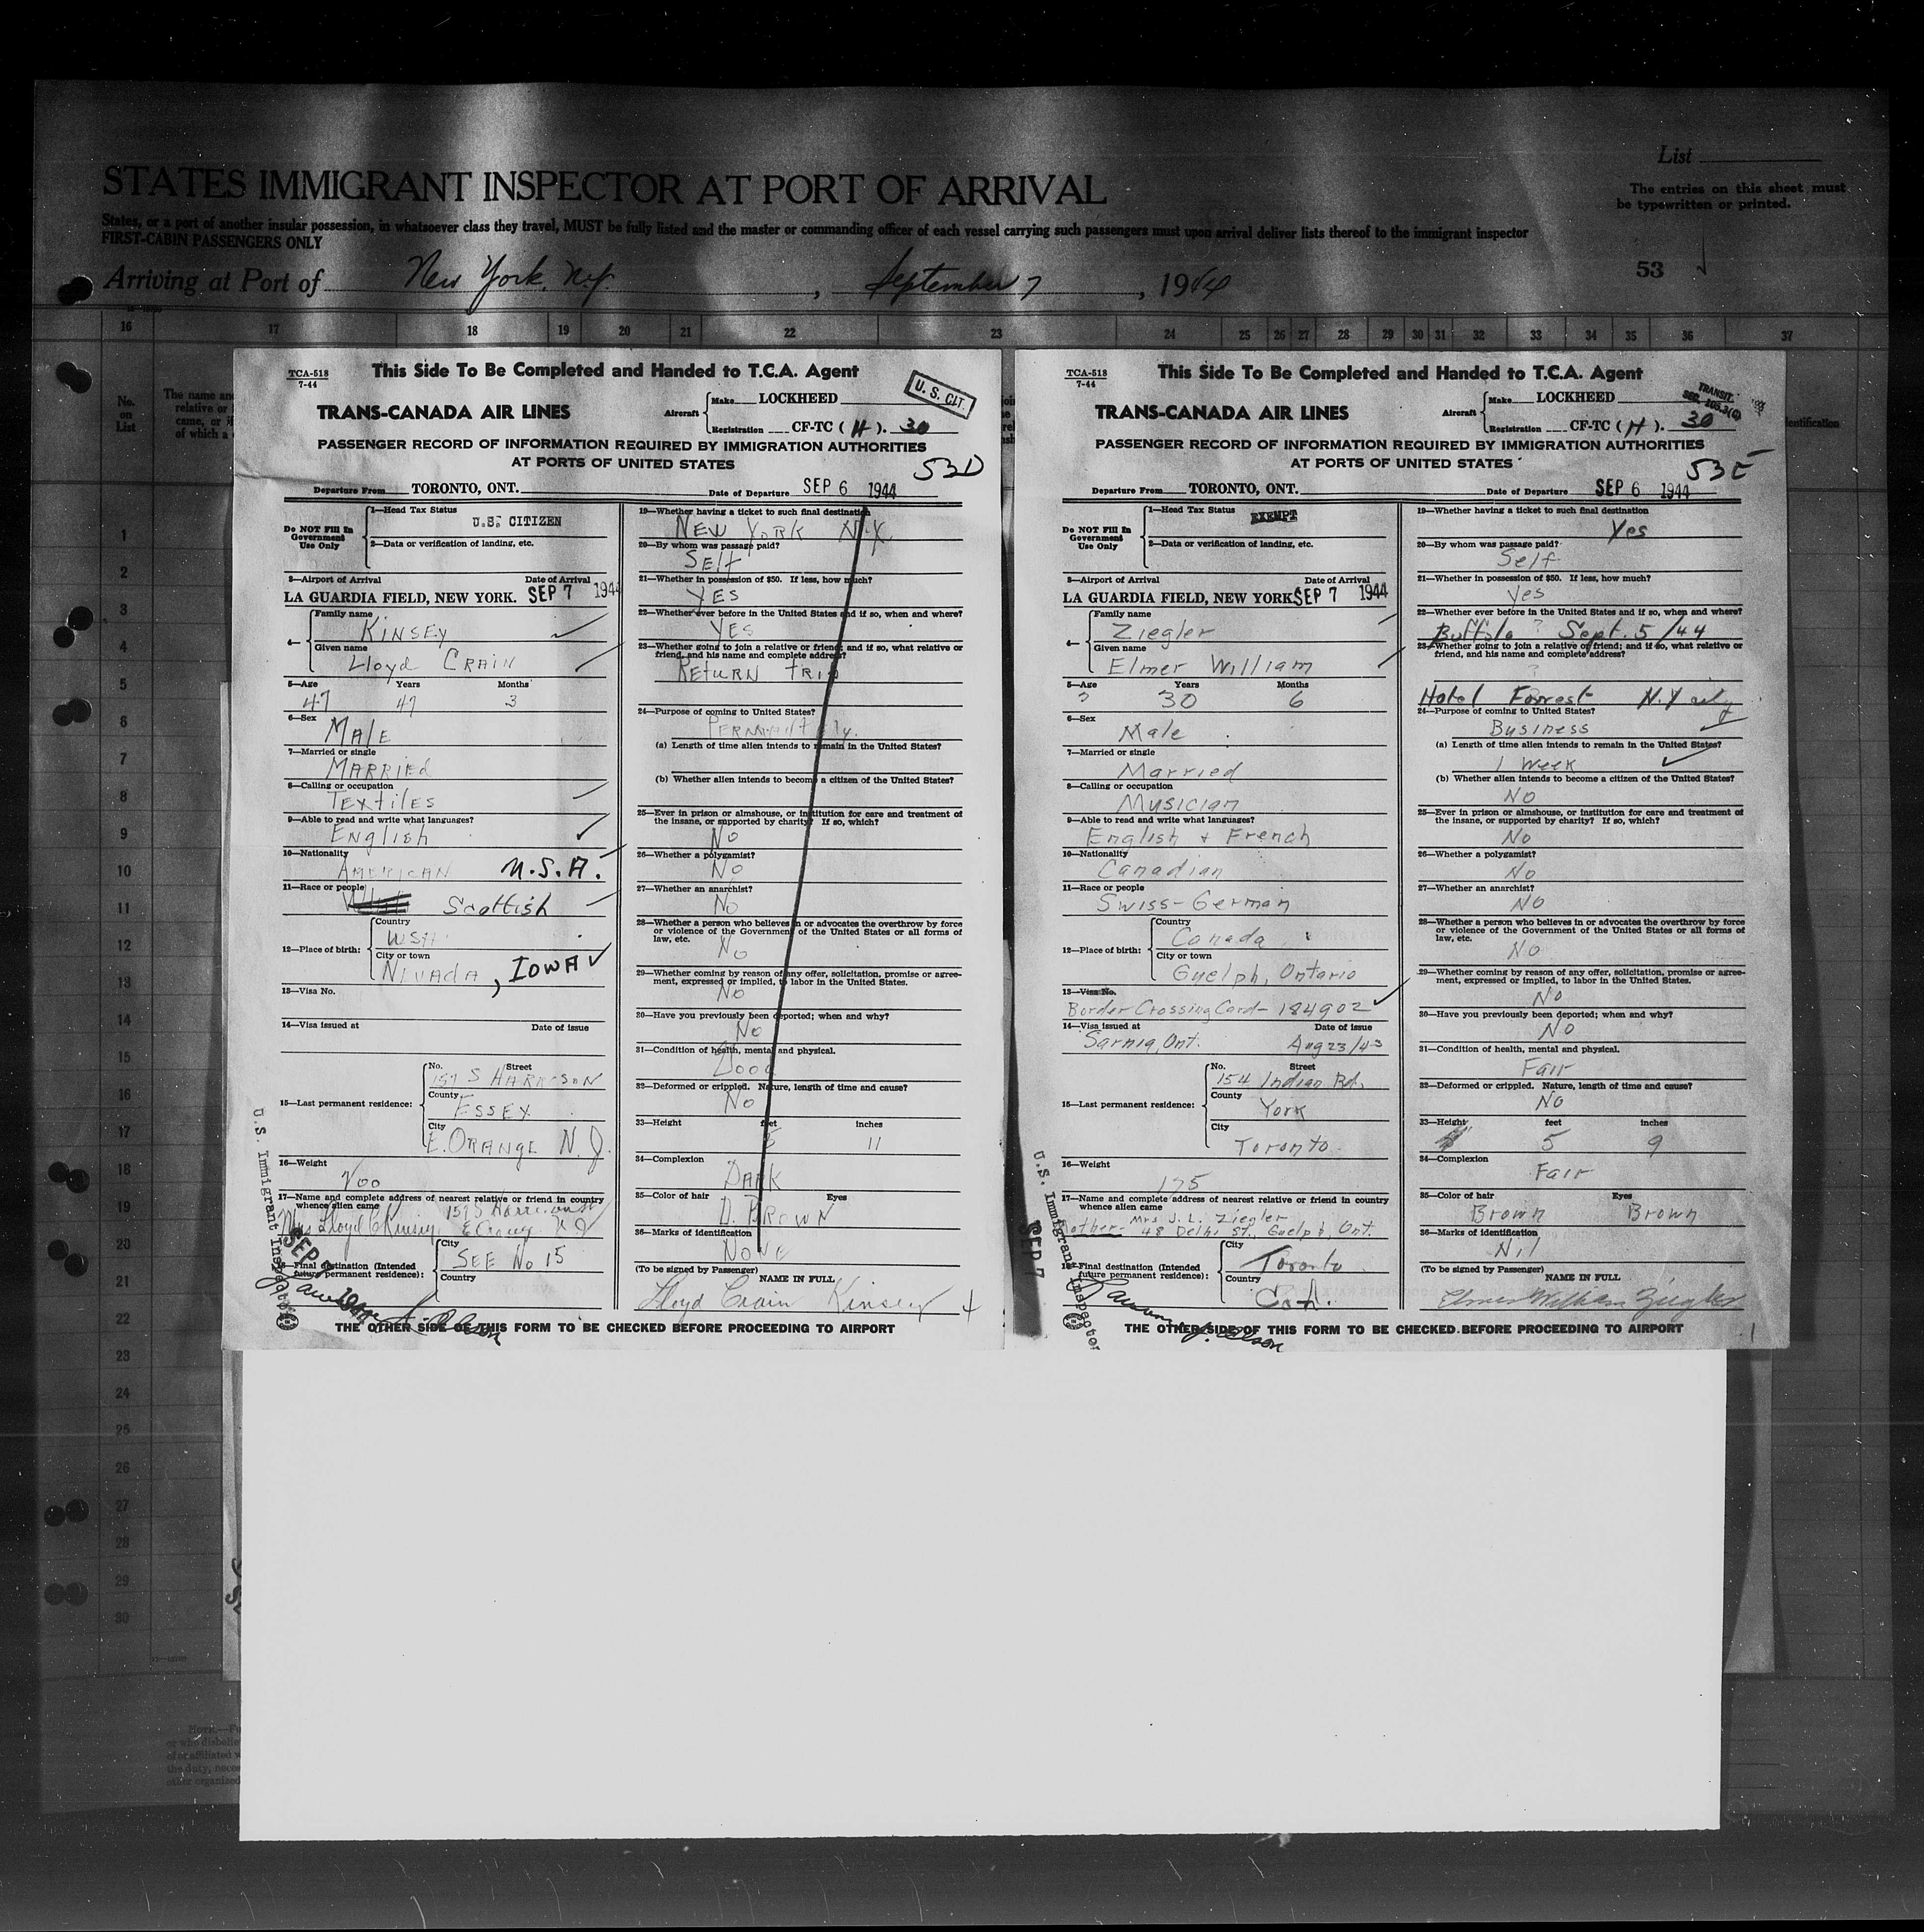 List
STATES IMMIGRANT INSPECTOR AT PORT OF ARRIVAL
The entries on this sheet must
be typewritten or printed.
States, or a port of another insular possession, in whatsoever class they travel, MUST be fully listed and the master or commanding officer of each vessel carrying such passengers must upon arrival deliver lists thereof to the immigrant inspector
FIRST-CABIN PASSENGERS ONLY
53
Arriving at Port of New York, N.Y. , September 7 , 1944
16 17 18 19 20 21 22 23 24 25 26 27 28 29 30 31 32 33 34 35 36 37
No.
on
List
The name and
relative or
came, or if
of which a
1
2
3
4
5
6
7
8
9
10
11
12
13
14
15
16
17
18
19
20
21
22
23
24
25
26
27
28
29
30
TCA-518
7-44
This Side To Be Completed and Handed to T.C.A. Agent
U. S. CIT.
TRANS-CANADA AIR LINES
Aircraft
Make LOCKHEED
Registration CF-TC ( H ). 30
PASSENGER RECORD OF INFORMATION REQUIRED BY IMMIGRATION AUTHORITIES
AT PORTS OF UNITED STATES
53D
Departure From TORONTO, ONT. Date of Departure SEP 6 1944
Do NOT Fill In
Government
Use Only
1—Head Tax Status
U.S. CITIZEN
2—Data or verification of landing, etc.
3—Airport of Arrival Date of Arrival
LA GUARDIA FIELD, NEW YORK. SEP 7 1944
4—
Family name
KINSEY
Given name
Lloyd CRAIN
5—Age Years Months
47 47 3
6—Sex
MALE
7—Married or single
MARRIED
8—Calling or occupation
TEXTILES
9—Able to read and write what languages?
English
10—Nationality
AMERICAN U.S.A.
11—Race or people
Scottish
12—Place of birth:
Country
USA
City or town
NEVADA, IOWA
13—Visa No.
14—Visa issued at Date of issue
15—Last permanent residence:
No. Street
157 S HARRISON
County
ESSEX
City
E. ORANGE N. J.
16—Weight
200
17—Name and complete address of nearest relative or friend in country
whence alien came
157 S Harrison St
Mrs Lloyd C Kinsey E Orange N J
18—Final destination (Intended
future permanent residence):
City
SEE No 15
Country
19—Whether having a ticket to such final destination
NEW YORK N.Y.
20—By whom was passage paid?
SELF
21—Whether in possession of $50. If less, how much?
YES
22—Whether ever before in the United States and if so, when and where?
YES
23—Whether going to join a relative or friend; and if so, what relative or
friend, and his name and complete address?
RETURN TRIP
24—Purpose of coming to United States?
(a) Length of time alien intends to remain in the United States?
(b) Whether alien intends to become a citizen of the United States?
25—Ever in prison or almshouse, or institution for care and treatment of
the insane, or supported by charity? If so, which?
No
26—Whether a polygamist?
No
27—Whether an anarchist?
No
28—Whether a person who believes in or advocates the overthrow by force
or violence of the Government of the United States or all forms of
law, etc.
No
29—Whether coming by reason of any offer, solicitation, promise or agree-
ment, expressed or implied, to labor in the United States.
No
30—Have you previously been deported; when and why?
No
31—Condition of health, mental and physical.
Good
32—Deformed or crippled. Nature, length of time and cause?
No
33—Height feet inches
5 11
34—Complexion
DARK
35—Color of hair Eyes
D. BROWN
36—Marks of identification
NONE
(To be signed by Passenger)
NAME IN FULL
Lloyd Crain Kinsey
U.S. Immigrant Inspector
SEP 7 1944
THE OTHER SIDE OF THIS FORM TO BE CHECKED BEFORE PROCEEDING TO AIRPORT
TCA-518
7-44
This Side To Be Completed and Handed to T.C.A. Agent
TRANSIT.
SEC. 105.3(C)
TRANS-CANADA AIR LINES
Aircraft
Make LOCKHEED
Registration CF-TC ( H ). 30
PASSENGER RECORD OF INFORMATION REQUIRED BY IMMIGRATION AUTHORITIES
AT PORTS OF UNITED STATES
53E
Departure From TORONTO, ONT. Date of Departure SEP 6 1944
Do NOT Fill In
Government
Use Only
1—Head Tax Status
EXEMPT
2—Data or verification of landing, etc.
3—Airport of Arrival Date of Arrival
LA GUARDIA FIELD, NEW YORK SEP 7 1944
4—
Family name
Ziegler
Given name
Elmer William
5—Age Years Months
30 6
6—Sex
Male
7—Married or single
Married
8—Calling or occupation
Musician
9—Able to read and write what languages?
English + French
10—Nationality
Canadian
11—Race or people
Swiss-German
12—Place of birth:
Country
Canada
City or town
Guelph, Ontario
13—Visa No.
Border Crossing Card - 184902
14—Visa issued at Date of issue
Sarnia, Ont. Aug 23/43
15—Last permanent residence:
No. Street
154 Indian Rd.
County
York
City
Toronto
16—Weight
175
17—Name and complete address of nearest relative or friend in country
whence alien came
Mrs J. L. Ziegler
Mother- 48 Delhi St., Guelph, Ont.
18—Final destination (Intended
future permanent residence):
City
Toronto
Country
Can.
19—Whether having a ticket to such final destination
Yes
20—By whom was passage paid?
Self
21—Whether in possession of $50. If less, how much?
Yes
22—Whether ever before in the United States and if so, when and where?
Buffalo ? Sept. 5/44
23—Whether going to join a relative or friend; and if so, what relative or
friend, and his name and complete address?
Hotel Forrest N.Y city
24—Purpose of coming to United States?
Business
(a) Length of time alien intends to remain in the United States?
1 week
(b) Whether alien intends to become a citizen of the United States?
NO
25—Ever in prison or almshouse, or institution for care and treatment of
the insane, or supported by charity? If so, which?
No
26—Whether a polygamist?
No
27—Whether an anarchist?
NO
28—Whether a person who believes in or advocates the overthrow by force
or violence of the Government of the United States or all forms of
law, etc.
NO
29—Whether coming by reason of any offer, solicitation, promise or agree-
ment, expressed or implied, to labor in the United States.
No
30—Have you previously been deported; when and why?
NO
31—Condition of health, mental and physical.
Fair
32—Deformed or crippled. Nature, length of time and cause?
NO
33—Height feet inches
5 9
34—Complexion
Fair
35—Color of hair Eyes
Brown Brown
36—Marks of identification
Nil
(To be signed by Passenger)
NAME IN FULL
Elmer William Ziegler
U.S. Immigrant Inspector
SEP 7
THE OTHER SIDE OF THIS FORM TO BE CHECKED BEFORE PROCEEDING TO AIRPORT